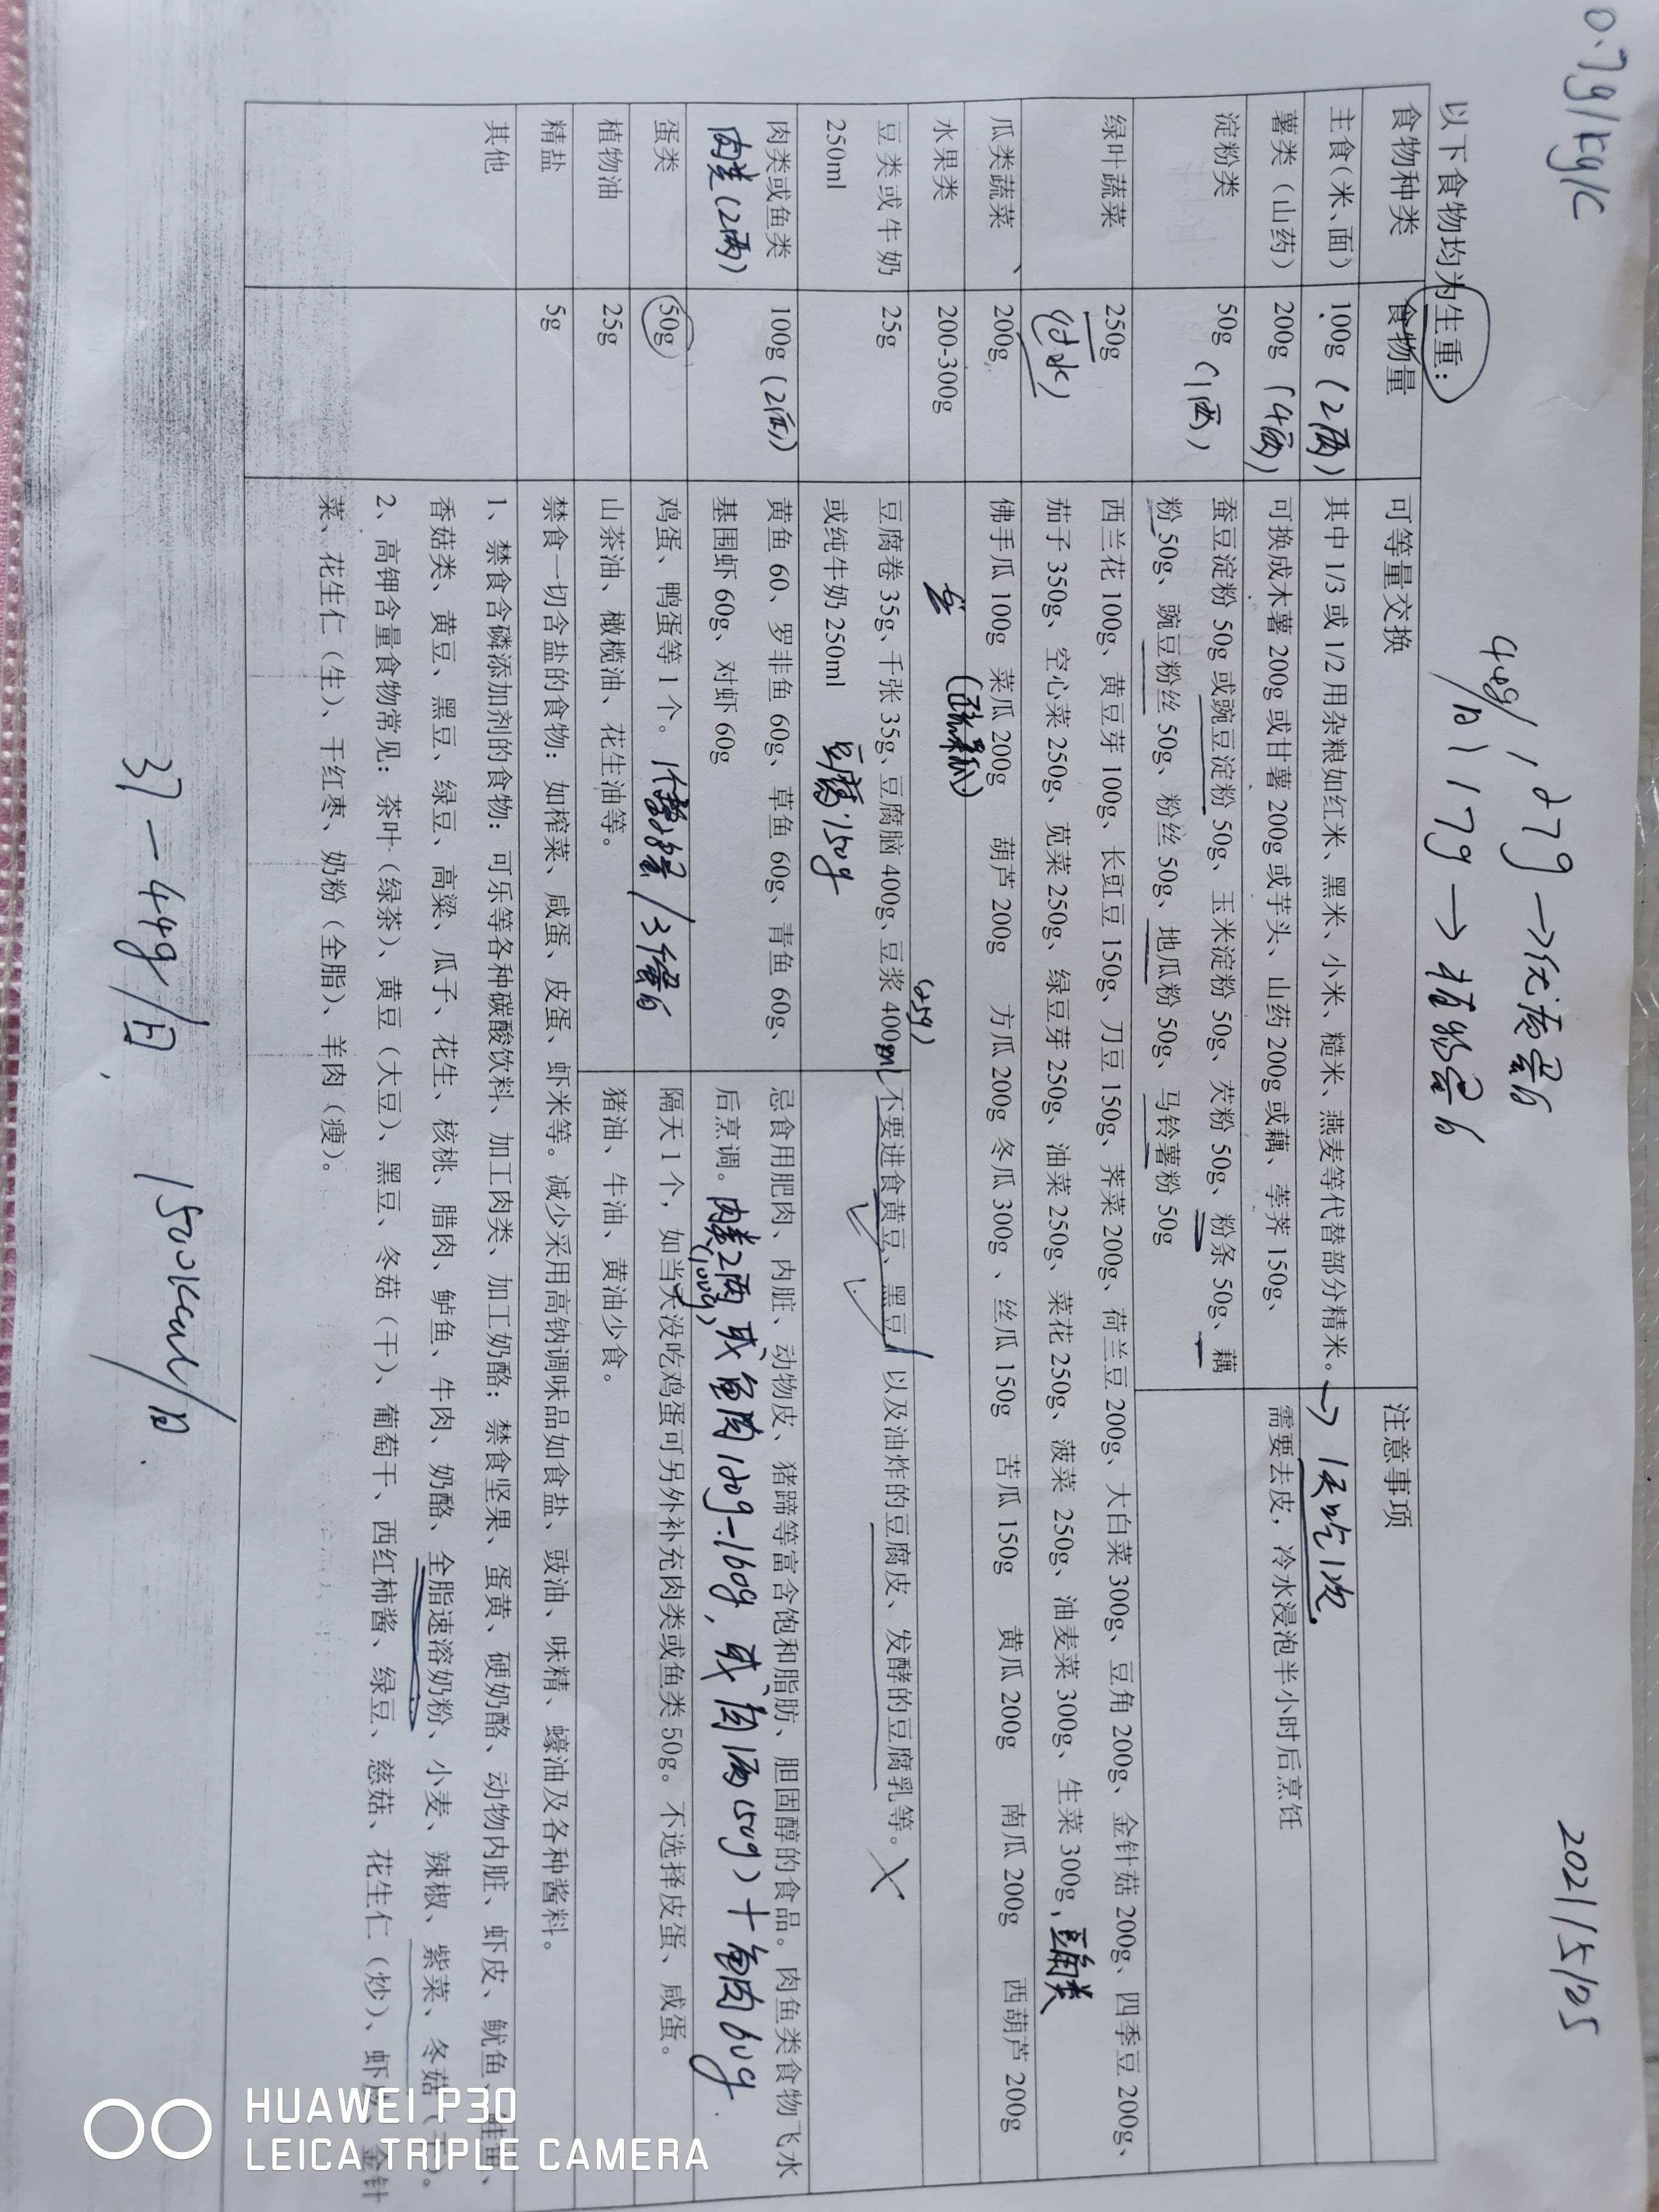 0.7g/kg/
2021/5/25
44g/日
27g→优质蛋白
17g→植物蛋白
以下食物均为生重：
食物种类 食物量 可等量交换 注意事项
主食（米、面） 100g (2两) 其中 1/3 或 1/2 用杂粮如红米、黑米、小米、糙米、燕麦等代替部分精米。→1天吃1次.
薯类（山药） 200g (4两) 可换成木薯 200g 或甘薯 200g 或芋头、山药 200g 或藕、荸荠 150g、 需要去皮，冷水浸泡半小时后烹饪
淀粉类 50g (1两) 蚕豆淀粉 50g 或豌豆淀粉 50g、玉米淀粉 50g、芡粉 50g、粉条 50g、藕
粉 50g、豌豆粉丝 50g、粉丝 50g、地瓜粉 50g、马铃薯粉 50g
绿叶蔬菜 250g 西兰花 100g、黄豆芽 100g、长豇豆 150g、刀豆 150g、荠菜 200g、荷兰豆 200g、大白菜 300g、豆角 200g、金针菇 200g、四季豆 200g、
(过水) 茄子 350g、空心菜 250g、苋菜 250g、绿豆芽 250g、油菜 250g、菜花 250g、菠菜 250g、油麦菜 300g、生菜 300g、豆角类
瓜类蔬菜 200g 佛手瓜 100g 菜瓜 200g 葫芦 200g 方瓜 200g 冬瓜 300g、丝瓜 150g 苦瓜 150g 黄瓜 200g 南瓜 200g 西葫芦 200g
水果类 200-300g
(25g)
豆类或牛奶 25g 豆腐卷 35g、千张 35g、豆腐脑 400g、豆浆 400ml 不要进食黄豆、黑豆以及油炸的豆腐皮、发酵的豆腐乳等。
250ml 或纯牛奶 250ml 豆腐150g
肉类或鱼类 100g (2两) 黄鱼 60、罗非鱼 60g、草鱼 60g、青鱼 60g、 忌食用肥肉、内脏、动物皮、猪蹄等富含饱和脂肪、胆固醇的食品。肉鱼类食物飞水
肉类(2两) 基围虾 60g、对虾 60g 后烹调。肉类2两(100g)或鱼肉120g-160g，或肉1两(50g)+鱼肉60g.
蛋类 50g 鸡蛋、鸭蛋等 1 个。 隔天 1 个，如当天没吃鸡蛋可另外补充肉类或鱼类 50g。不选择皮蛋、咸蛋。
植物油 25g 山茶油、橄榄油、花生油等。 猪油、牛油、黄油少食。
精盐 5g 禁食一切含盐的食物：如榨菜、咸蛋、皮蛋、虾米等。减少采用高钠调味品如食盐、豉油、味精、蠔油及各种酱料。
其他 1、禁食含磷添加剂的食物：可乐等各种碳酸饮料、加工肉类、加工奶酪；禁食坚果、蛋黄、硬奶酪、动物内脏、虾皮、鱿鱼、
香菇类、黄豆、黑豆、绿豆、高粱、瓜子、花生、核桃、腊肉、鲈鱼、牛肉、奶酪、全脂速溶奶粉、小麦、辣椒、紫菜、冬菇
2、高钾含量食物常见：茶叶（绿茶）、黄豆（大豆）、黑豆、冬菇（干）、葡萄干、西红柿酱、绿豆、慈菇、花生仁（炒）、虾皮、金针
菜、花生仁（生）、干红枣、奶粉（全脂）、羊肉（瘦）。
37-44g/日. 1500kcal/日.
HUAWEI P30
LEICA TRIPLE CAMERA